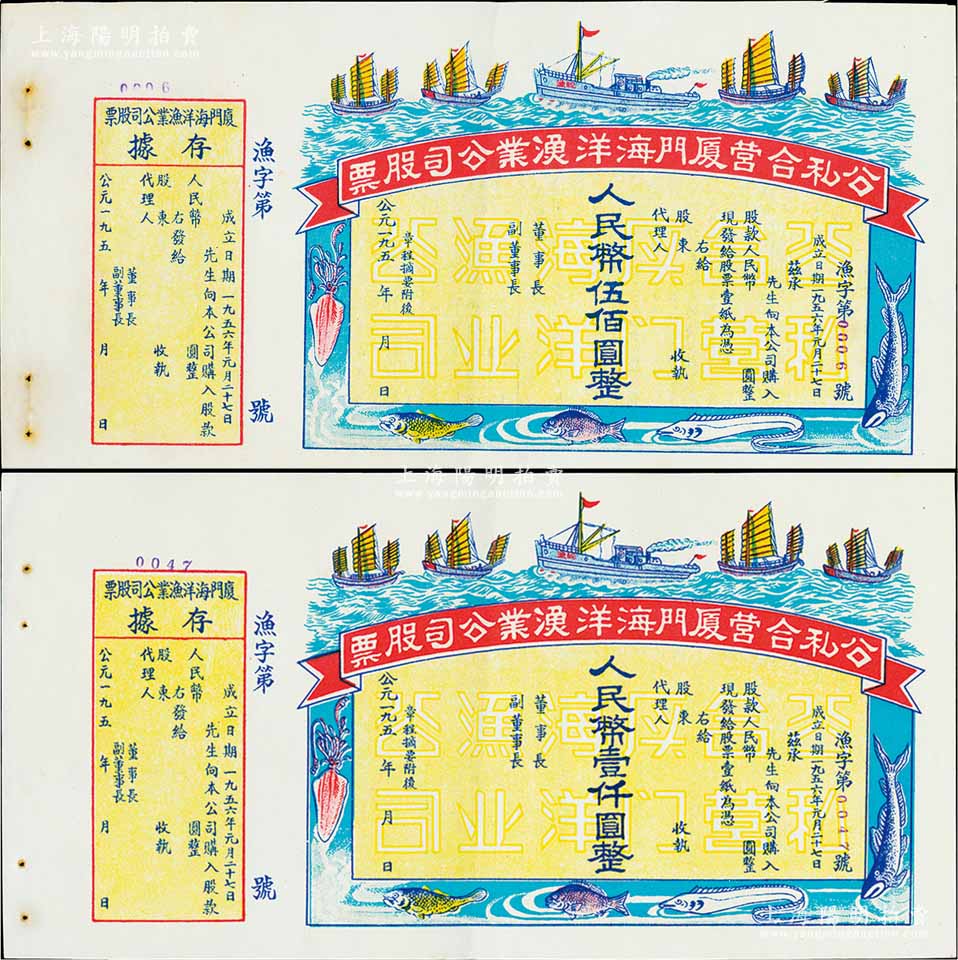 上海陽明拍賣
www.yangmingauction.com
0006
廈門海洋漁業公司股票
存據
成立日期一九五六年元月二十七日
先生向本公司購入股款
人民幣 圓整
右發給
股東 收執
代理人
董事長
副董事長
公元一九五 年 月 日
漁字第 號
公私合營廈門海洋漁業公司股票
漁字第0006號
成立日期一九五六年元月二十七日
茲承
先生向本公司購入
股款人民幣 圓整
現發給股票壹紙為憑
右給
股東 收執
代理人
人民幣伍佰圓整
董事長
副董事長
章程摘要附後
公元一九五 年 月 日
上海陽明拍賣
www.yangmingauction.com
0047
廈門海洋漁業公司股票
存據
成立日期一九五六年元月二十七日
先生向本公司購入股款
人民幣 圓整
右發給
股東 收執
代理人
董事長
副董事長
公元一九五 年 月 日
漁字第 號
公私合營廈門海洋漁業公司股票
漁字第0047號
成立日期一九五六年元月二十七日
茲承
先生向本公司購入
股款人民幣 圓整
現發給股票壹紙為憑
右給
股東 收執
代理人
人民幣壹仟圓整
董事長
副董事長
章程摘要附後
公元一九五 年 月 日
上海陽明拍賣
www.yangmingauction.com